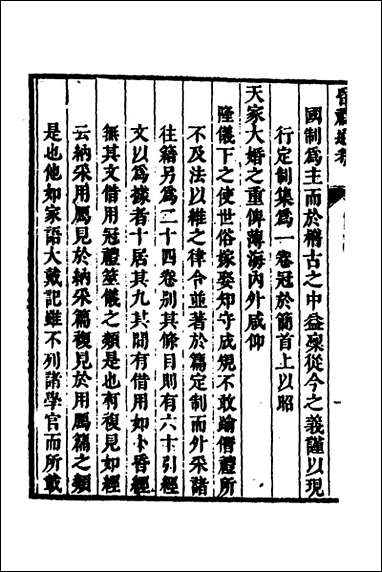 昏禮通考
國制爲主而於稽古之中益凜從今之義謹以現
行定制集爲一卷冠於簡首上以昭
天家大婚之重俾薄海內外咸仰
隆儀下之使世俗嫁娶知守成規不敢踰僭禮所
不及法以維之律令並著於篇定制而外采諸
往籍另爲二十四卷別其條目則有六十引經
文以爲據者十居其九其間有借用如卜昏經
無其文借用冠禮筮儀之類是也有複見如經
云納采用鴈見於納采篇複見於用鴈篇之類
是也他如家語大戴記雖不列諸學官而所載